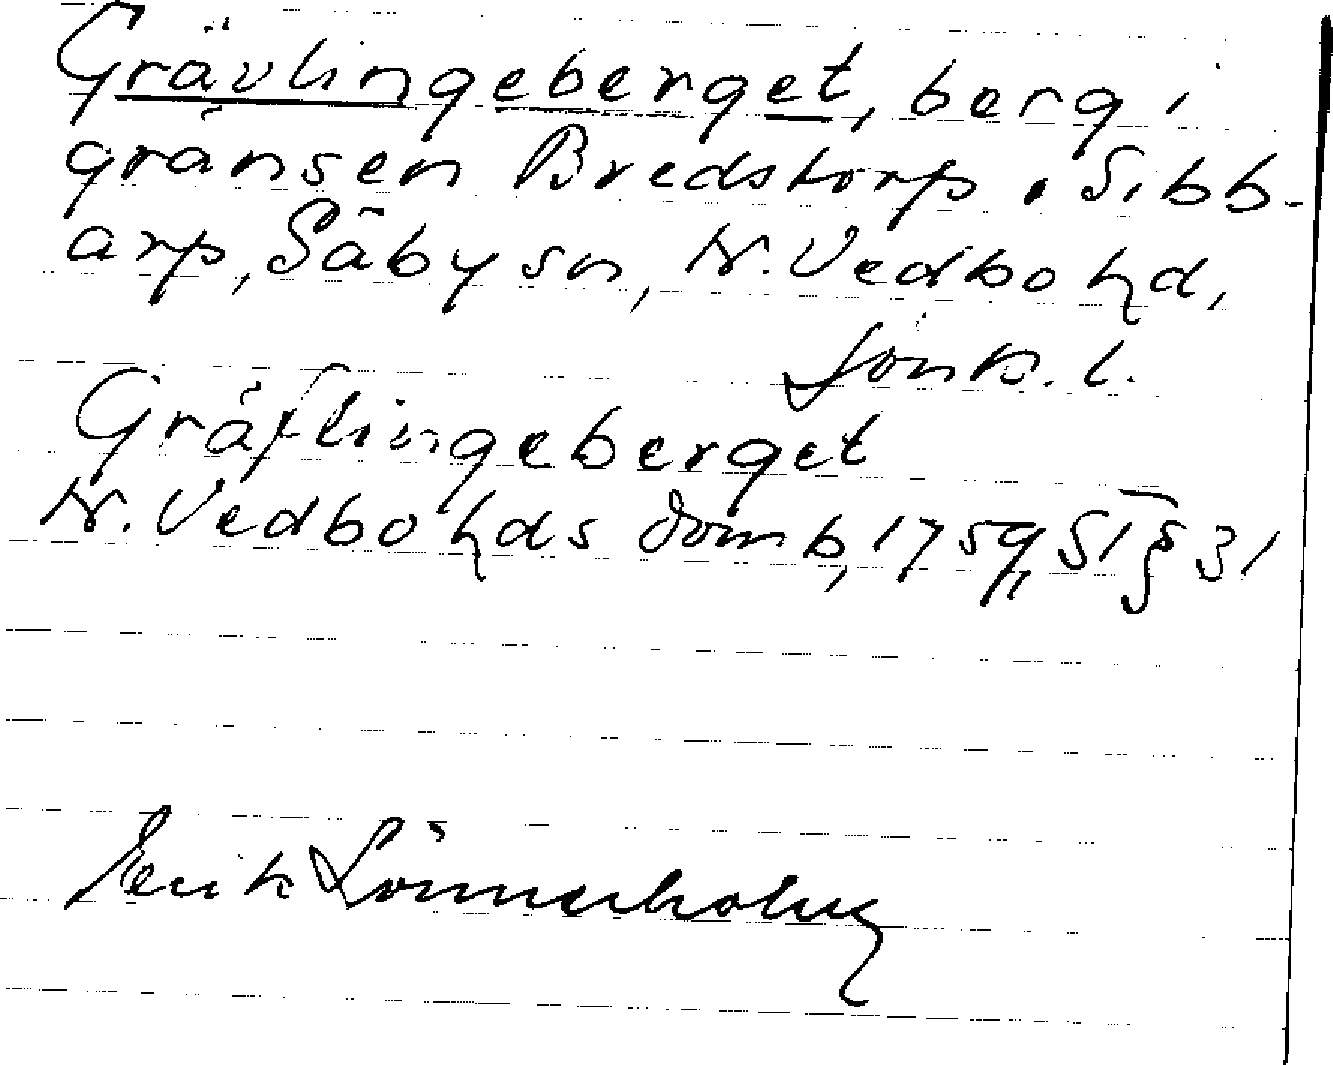 Grävlingeberget, berg i
gränsen Bredstorp • Sibb-
arp, Säby sn, N. Vedbo hd,
Jönk. l.
Gräflingeberget
N. Vedbo hds domb, 1759, § 31
Erik Lönnerholm